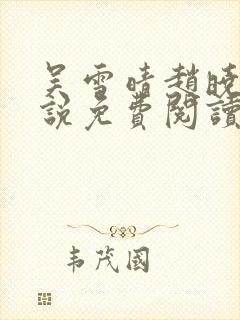 吴雪晴趙曉
說免費閱讀
韦茂國